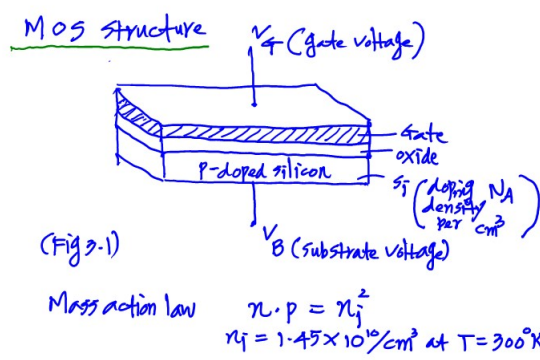 MOS structure
V_G (gate voltage)
Gate
oxide
P-doped silicon
Si (doping density per cm³ N_A)
(Fig 3-1)
V_B (substrate voltage)
Mass action law n·p = n_i²
n_i = 1.45 × 10¹⁰/cm³ at T = 300°K